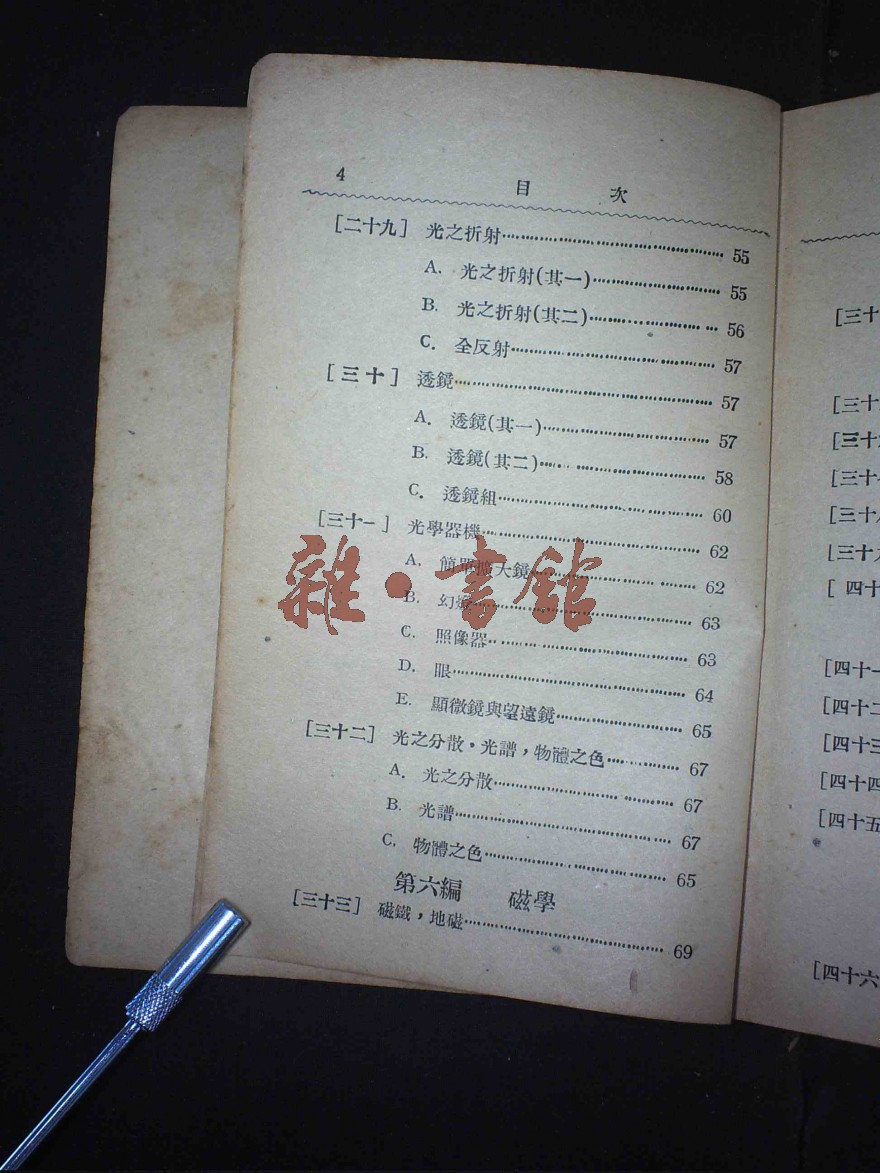 4 目 次
[二十九] 光之折射 55
A. 光之折射(其一) 55
B. 光之折射(其二) 56
C. 全反射 57
[三十] 透鏡 57
A. 透鏡(其一) 57
B. 透鏡(其二) 58
C. 透鏡組 60
[三十一] 光學器機 62
A. 簡單擴大鏡 62
B. 幻燈 63
C. 照像器 63
D. 眼 64
E. 顯微鏡與望遠鏡 65
[三十二] 光之分散,光譜,物體之色 67
A. 光之分散 67
B. 光譜 67
C. 物體之色 65
第六編 磁學
[三十三] 磁鐵,地磁 69
雜·書館
[三十
[三十
[三十
[三十
[三十八
[三十九
[四十
[四十一
[四十二
[四十三
[四十四
[四十五
[四十六